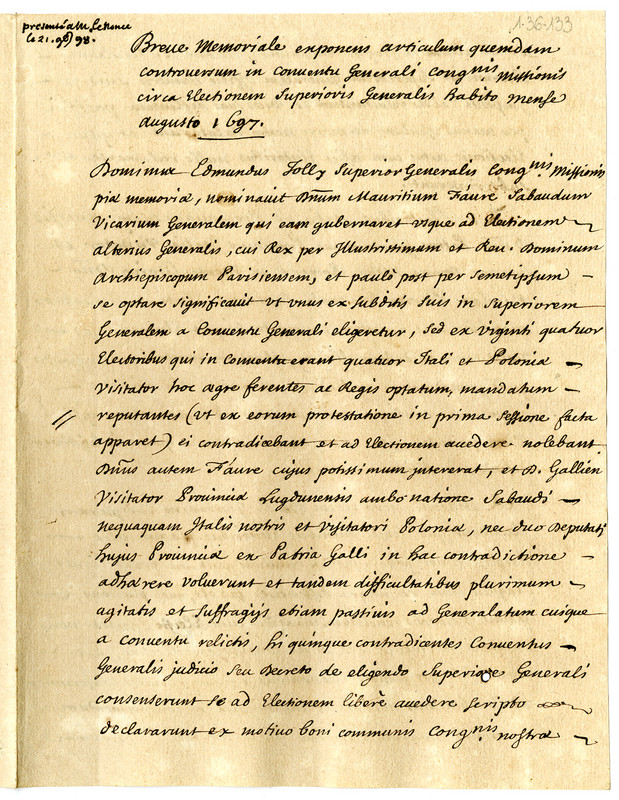 presenté a M. Le Nonce
le 21. 9b) 98.
1-36-133
Breve Memoriale exponens articulum quemdam
controversum in conventu Generali Congnis Missionis
circa Electionem Superioris Generalis habito mense
augusto 1697.
Dominus Edmundus Jolly Superior Generalis Congnis Missionis
piæ memoriæ, nominavit Dnum Mauritium Faure Sabaudum
Vicarium Generalem qui eam gubernaret usque ad Electionem
alterius Generalis, cui Rex per Illustrissimum et Rev. Dominum
Archiepiscopum Parisiensem, et paulò post per semetipsum
se optare significavit ut unus ex subditis suis in Superiorem
Generalem a Conventu Generali eligeretur, sed ex viginti quatuor
Electoribus qui in conventu erant quatuor Itali et Poloniæ
Visitator hoc ægre ferentes ac Regis optatum, mandatum
reputantes (ut ex eorum protestatione in prima sessione facta
apparet) ei contradicebant et ad Electionem accedere nolebant.
Dnus autem Faure cujus potissimum intererat, et D. Gallien
Visitator Provinciæ Lugdunensis ambo natione Sabaudi
nequaquam Italis nostris et Visitatori Poloniæ, nec duo Deputati
hujus Provinciæ ex Patria Galli in hac contradictione
adhærere voluerunt et tandem difficultatibus plurimum
agitatis et suffragijs etiam passivis ad Generalatum cuique
a conventu relictis, hi quinque contradicentes Conventus
Generalis judicio seu Decreto de eligendo Superiore Generali
consenserunt se ad Electionem liberè accedere scripto
declararunt ex motivo boni communis Congnis nostræ